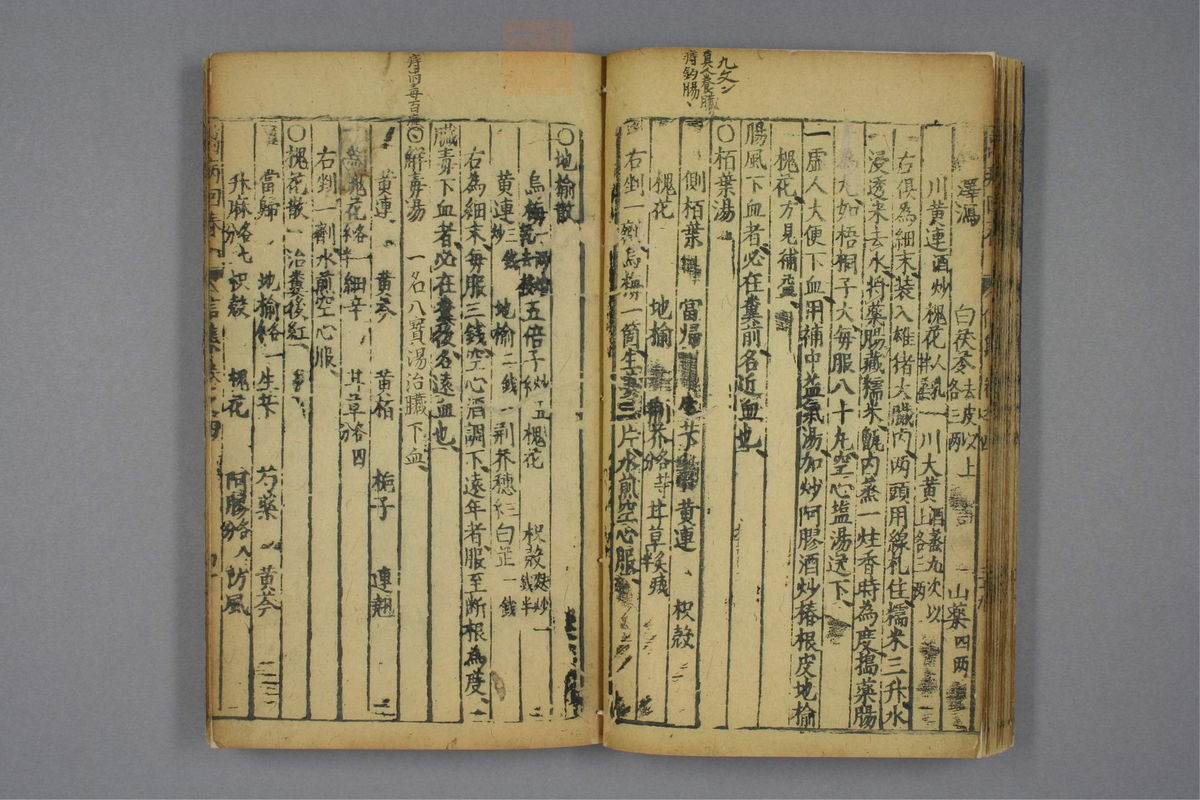 九文
真人養臟
痔鈎腸
澤瀉 白茯苓去皮以上各三兩 山藥四兩
川黃連酒炒槐花人乳 一川大黃酒蒸九次以上各二兩
右俱為細末裝入雄猪大臟內兩頭用線札住糯米三升水
浸透來去水將藥腸藏糯米甑內蒸一炷香時為度搗藥腸
為丸如梧桐子大每服八十丸空心塩湯送下
一虛人大便下血用補中益氣湯加炒阿膠酒炒椿根皮地榆
槐花方見補益
腸風下血者必在糞前名近血也
○栢葉湯
側栢葉 當歸 生芐 黃連 枳殼
槐花 地榆 荆芥各等分 甘草炙減半
右剉一劑烏梅一箇生姜三片水煎空心服
○地榆散
烏梅 五倍子炒 五 槐花 枳殼麩炒一錢半
黃連炒三錢 地榆二錢 一荆芥穗 白芷一錢
右為細末每服三錢空心酒調下遠年者服至斷根為度
臟毒下血者必在糞後名遠血也
○解毒湯 一名八寶湯治臟下血
黃連 黃芩 黃栢 梔子 連翹
槐花各 細辛 甘草各四分
右剉一劑水煎空心服
○槐花散 治糞後紅
當歸 地榆各一 生芐 芍藥 黃芩
升麻各七分 枳殼 槐花 阿膠各八分 防風